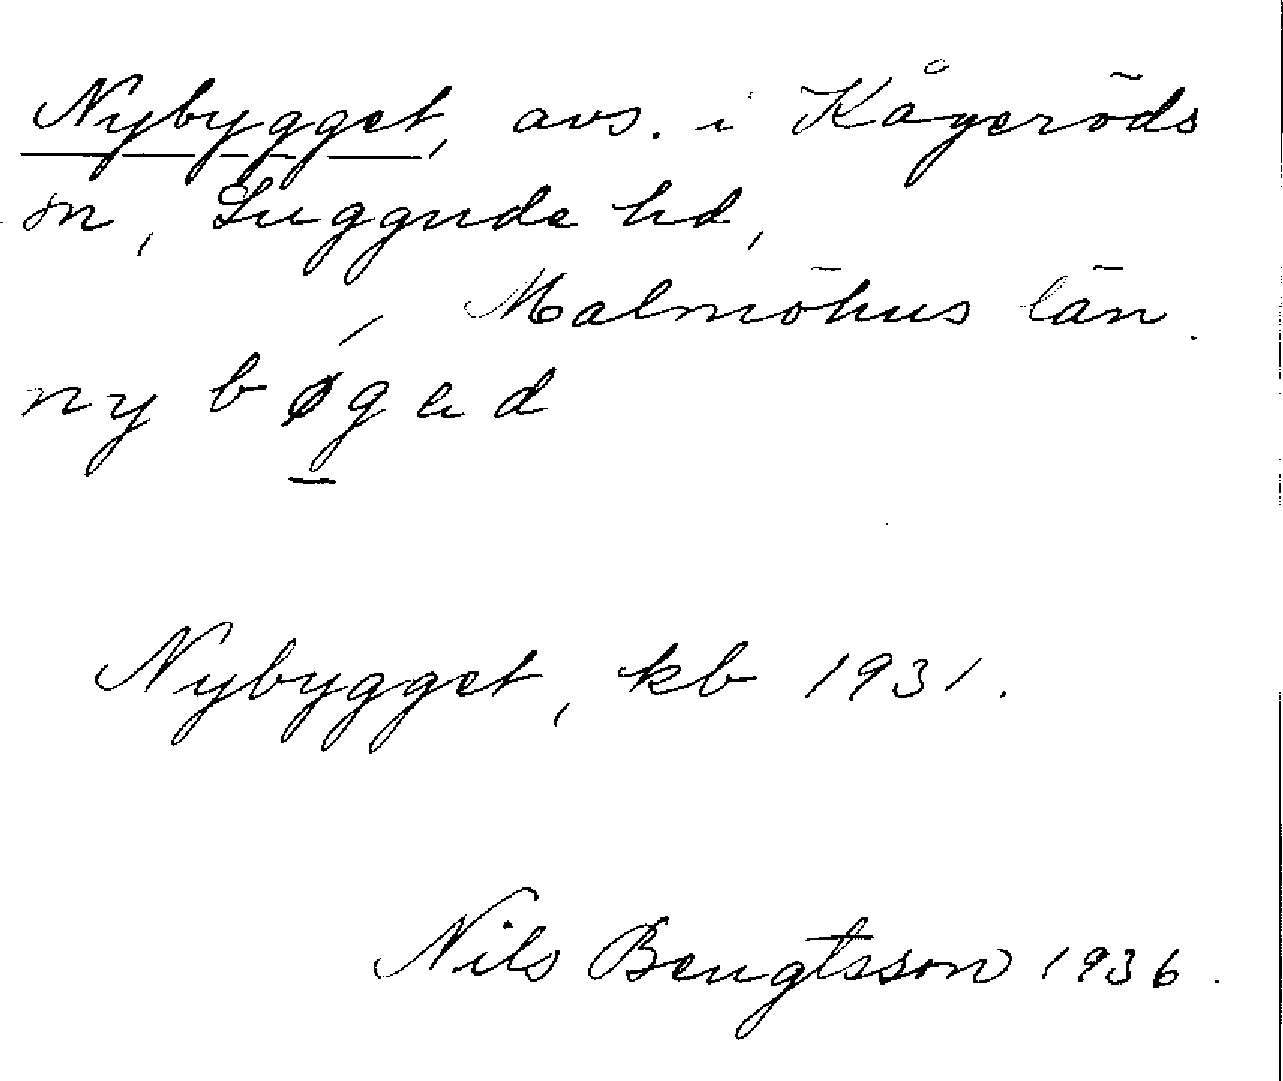 Nybygget, avs. i Kågeröds
sn, Luggude hd,
Malmöhus län.
ny bǿgad
Nybygget, kb 1931.
Nils Bengtsson 1936.